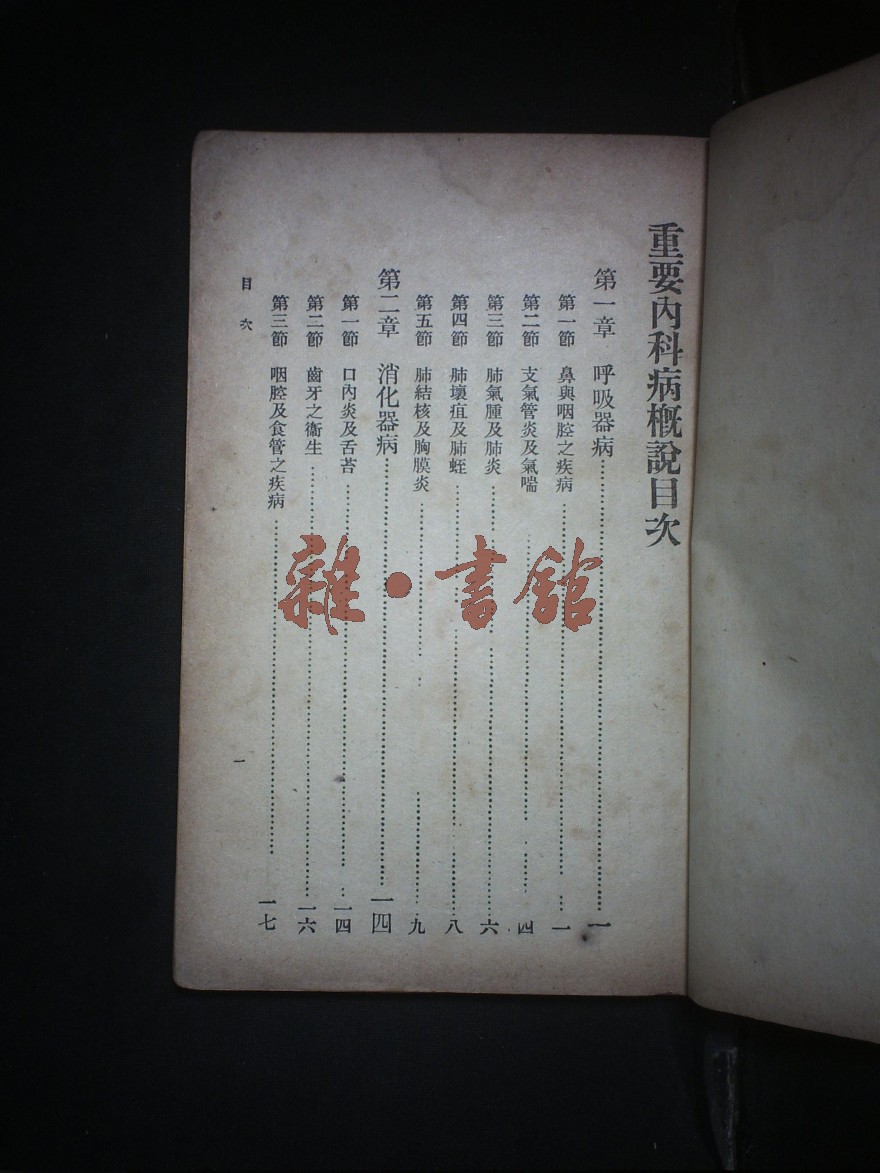 重要內科病概說目次
第一章　呼吸器病……一
第一節　鼻與咽腔之疾病……一
第二節　支氣管炎及氣喘……四
第三節　肺氣腫及肺炎……六
第四節　肺壞疽及肺蛭……八
第五節　肺結核及胸膜炎……九
第二章　消化器病……一四
第一節　口內炎及舌苔……一四
第二節　齒牙之衞生……一六
第三節　咽腔及食管之疾病……一七
目次　一
雜·書館